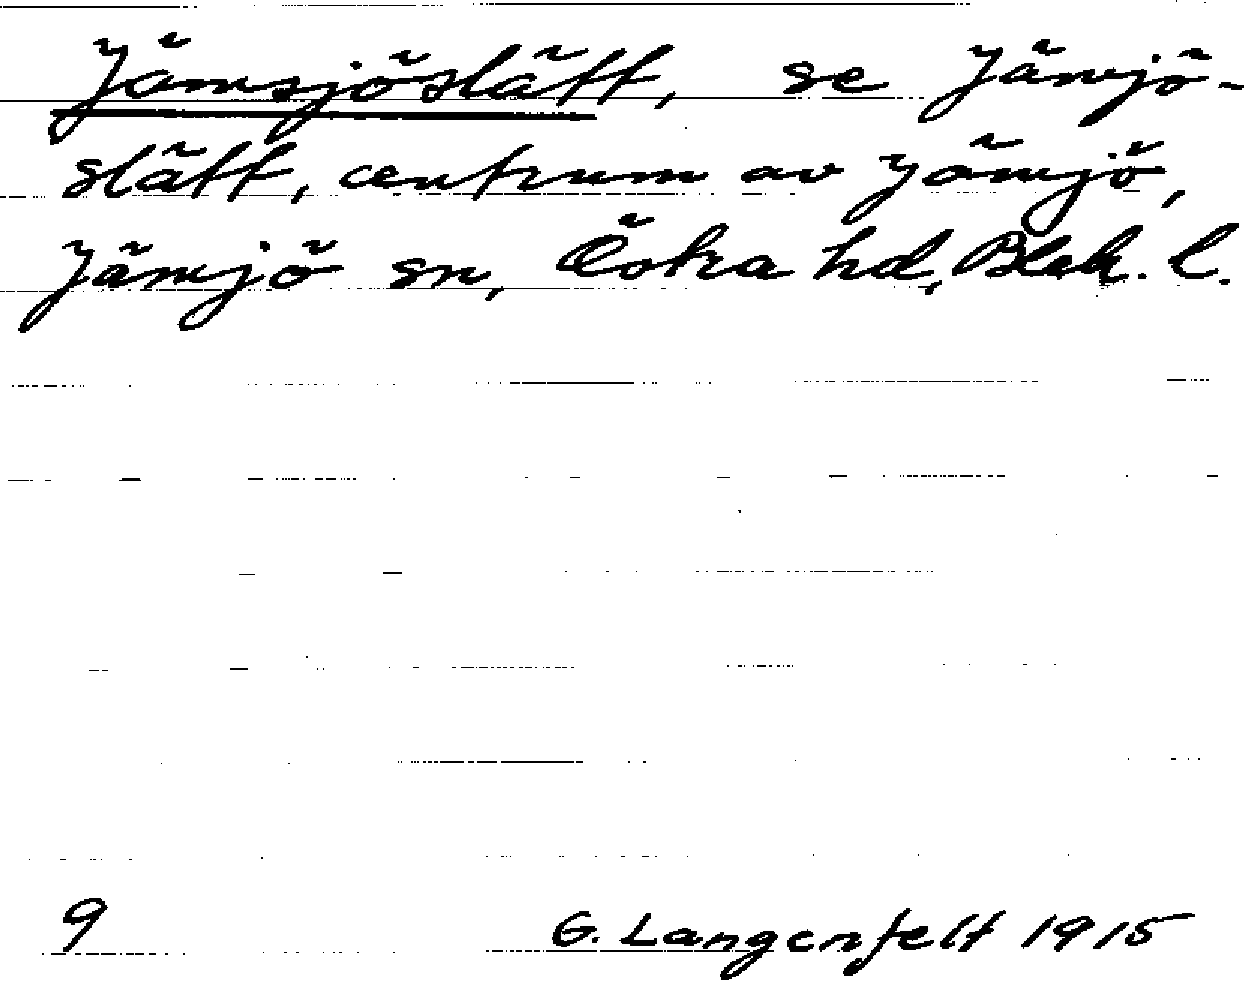 Jämsjöslätt, se Jämjö-
slätt, centrum av Jämjö,
Jämjö sn, Östra hd, Blek. l.
9 G. Langenfelt 1915